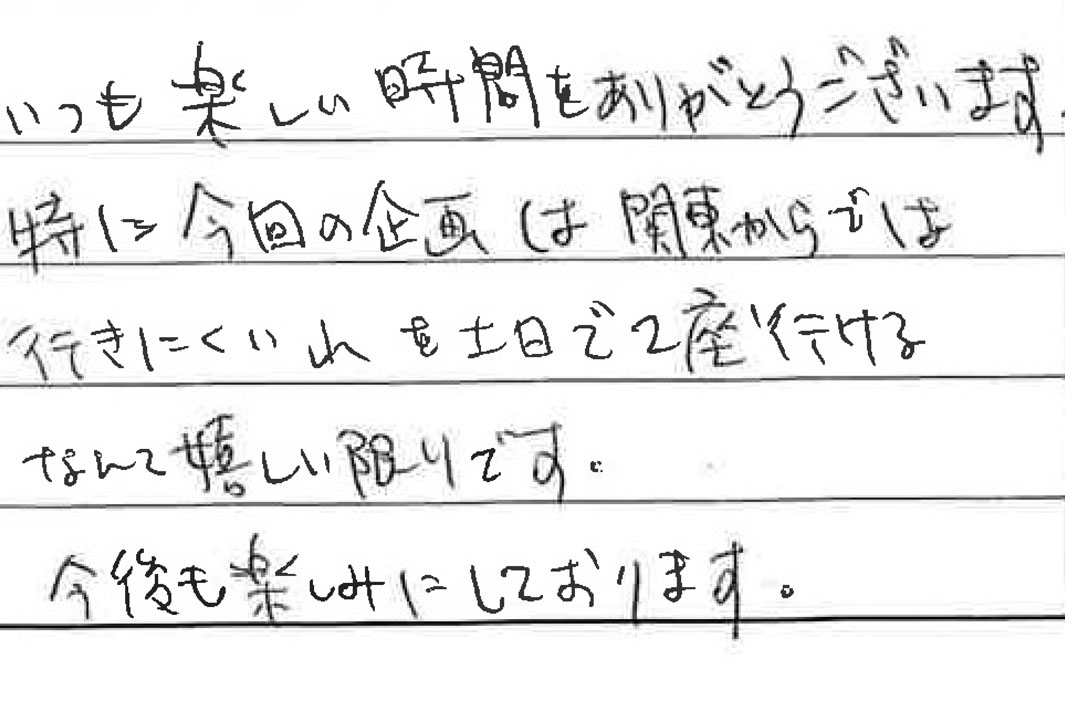 いつも楽しい時間をありがとうございます。
特に今回の企画は関東からでは
行きにくい山を土日で2座行ける
なんて嬉しい限りです。
今後も楽しみにしております。